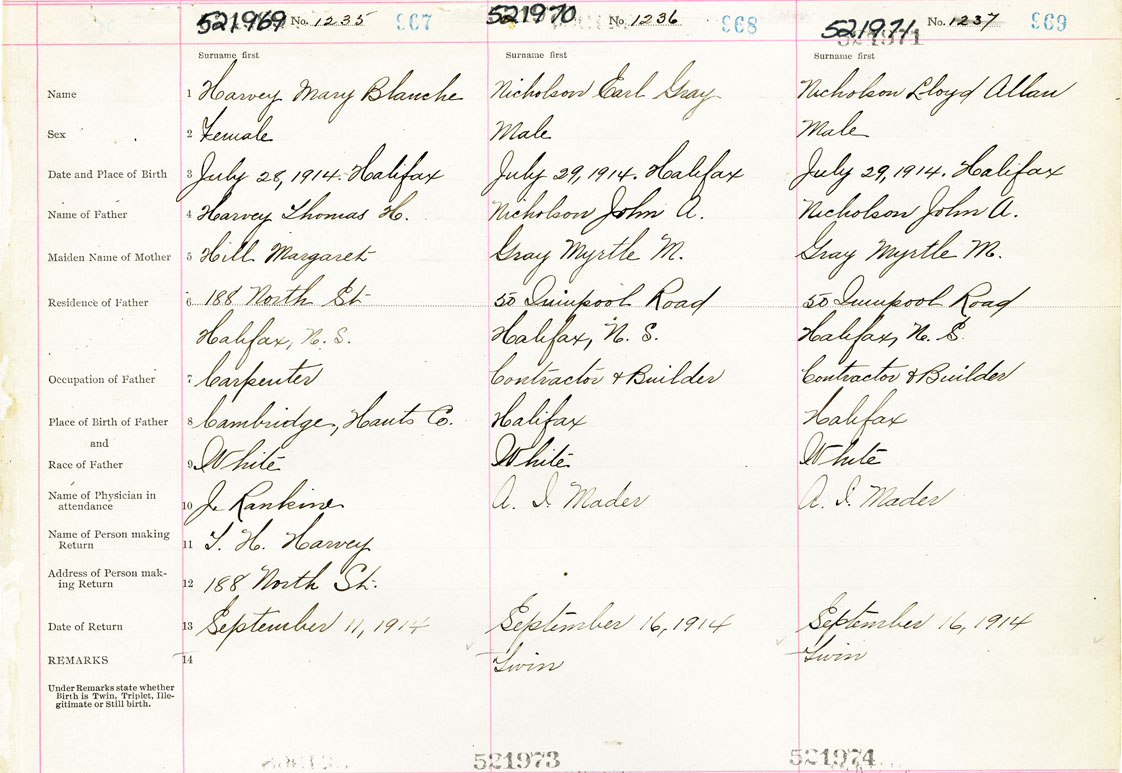 521969 No. 1235 967 521970 No. 1236 968 521971 No. 1237 969
521971
Surname first Surname first Surname first
Name 1 Harvey Mary Blanche Nicholson Earl Gray Nicholson Lloyd Allan
Sex 2 Female Male Male
Date and Place of Birth 3 July 28, 1914. Halifax July 29, 1914. Halifax July 29, 1914. Halifax
Name of Father 4 Harvey Thomas H. Nicholson John A. Nicholson John A.
Maiden Name of Mother 5 Hill Margaret Gray Myrtle M. Gray Myrtle M.
Residence of Father 6 188 North St. 50 Quinpool Road 50 Quinpool Road
Halifax, N. S. Halifax, N. S. Halifax, N. S.
Occupation of Father 7 Carpenter Contractor & Builder Contractor & Builder
Place of Birth of Father 8 Cambridge, Hants Co. Halifax Halifax
and
Race of Father 9 White White White
Name of Physician in
attendance 10 J. Rankine A. I. Mader A. I. Mader
Name of Person making
Return 11 T. H. Harvey
Address of Person mak-
ing Return 12 188 North St.
Date of Return 13 September 11, 1914 September 16, 1914 September 16, 1914
REMARKS 14 Twin Twin
Under Remarks state whether
Birth is Twin, Triplet, Ille-
gitimate or Still birth.
521973 521974